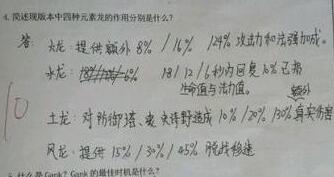 4. 简述现版本中四种元素龙的作用分别是什么？
答: 火龙: 提供额外 8% / 16% / 24% 攻击力和法强加成。
水龙: 18 / 12 / 6 秒内回复 10% 已损
生命值与法力值。
额外
10
土龙: 对防御塔、史诗野造成 10% / 20% / 30% 真实伤害
风龙: 提供 15% / 30% / 45% 脱战移速
什么是Gank? Gank的最佳时机是什么?